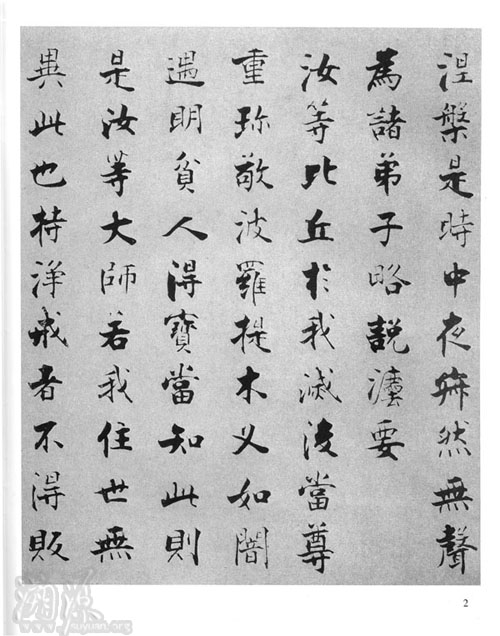 涅槃是時中夜寂然無聲
為諸弟子略說法要
汝等比丘於我滅後當尊
重珎敬波羅提木叉如闇
遇明貧人得寶當知此則
是汝等大師若我住世無
異此也持淨戒者不得販
2
溯源
suyuan.org